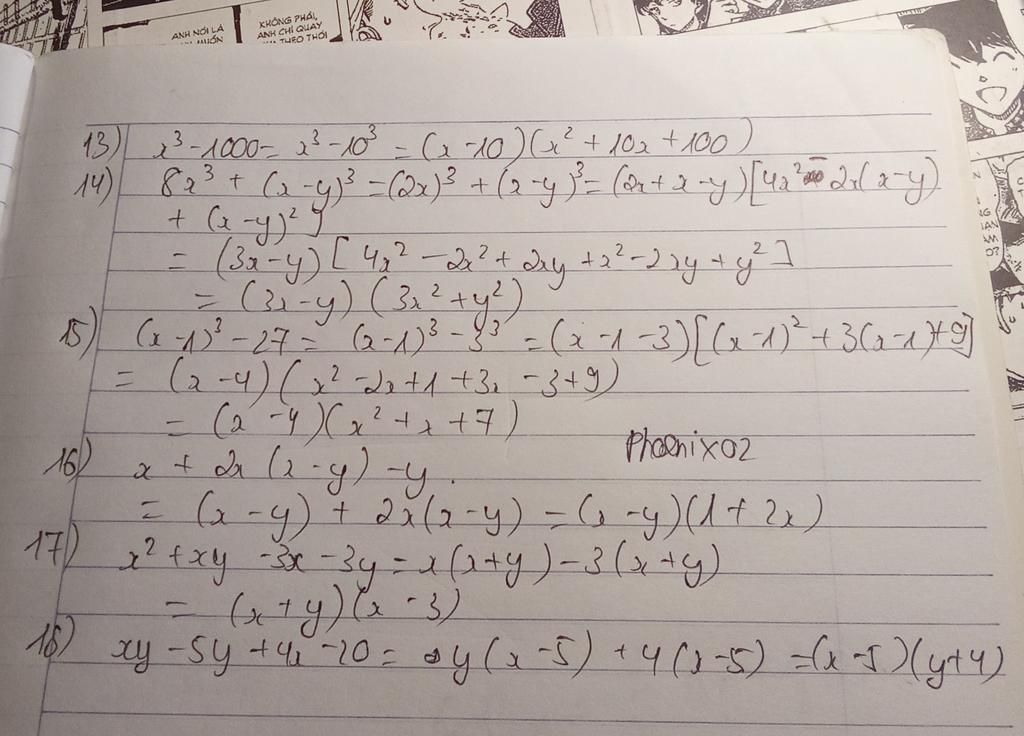 ANH NÓI LÀ
MUỐN
KHÔNG PHẢI,
ANH CHỈ QUAY
THEO THÓI
13) x³ - 1000 = x³ - 10³ = (x - 10)(x² + 10x + 100)
14) 8x³ + (x - y)³ = (2x)³ + (x - y)³ = (2x + x - y)[4x² - 2x(x - y)
+ (x - y)²]
= (3x - y)[4x² - 2x² + 2xy + x² - 2xy + y²]
= (3x - y)(3x² + y²)
15) (x - 1)³ - 27 = (x - 1)³ - 3³ = (x - 1 - 3)[(x - 1)² + 3(x - 1) + 9]
= (x - 4)(x² - 2x + 1 + 3x - 3 + 9)
= (x - 4)(x² + x + 7)
Phoenix02
16) x + 2x(x - y) - y.
= (x - y) + 2x(x - y) = (x - y)(1 + 2x)
17) x² + xy - 3x - 3y = x(x + y) - 3(x + y)
= (x + y)(x - 3)
18) xy - 5y + 4x - 20 = y(x - 5) + 4(x - 5) = (x - 5)(y + 4)